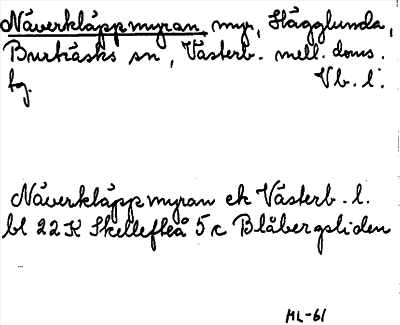 Näverkläppmyran, myr, Hägglunda,
Burträsks sn, Västerb. mell. doms.
tg. Vb. l.
Näverkläppmyran ek Västerb. l.
bl 22K Skellefteå 5c Blåbergsliden
ML-61